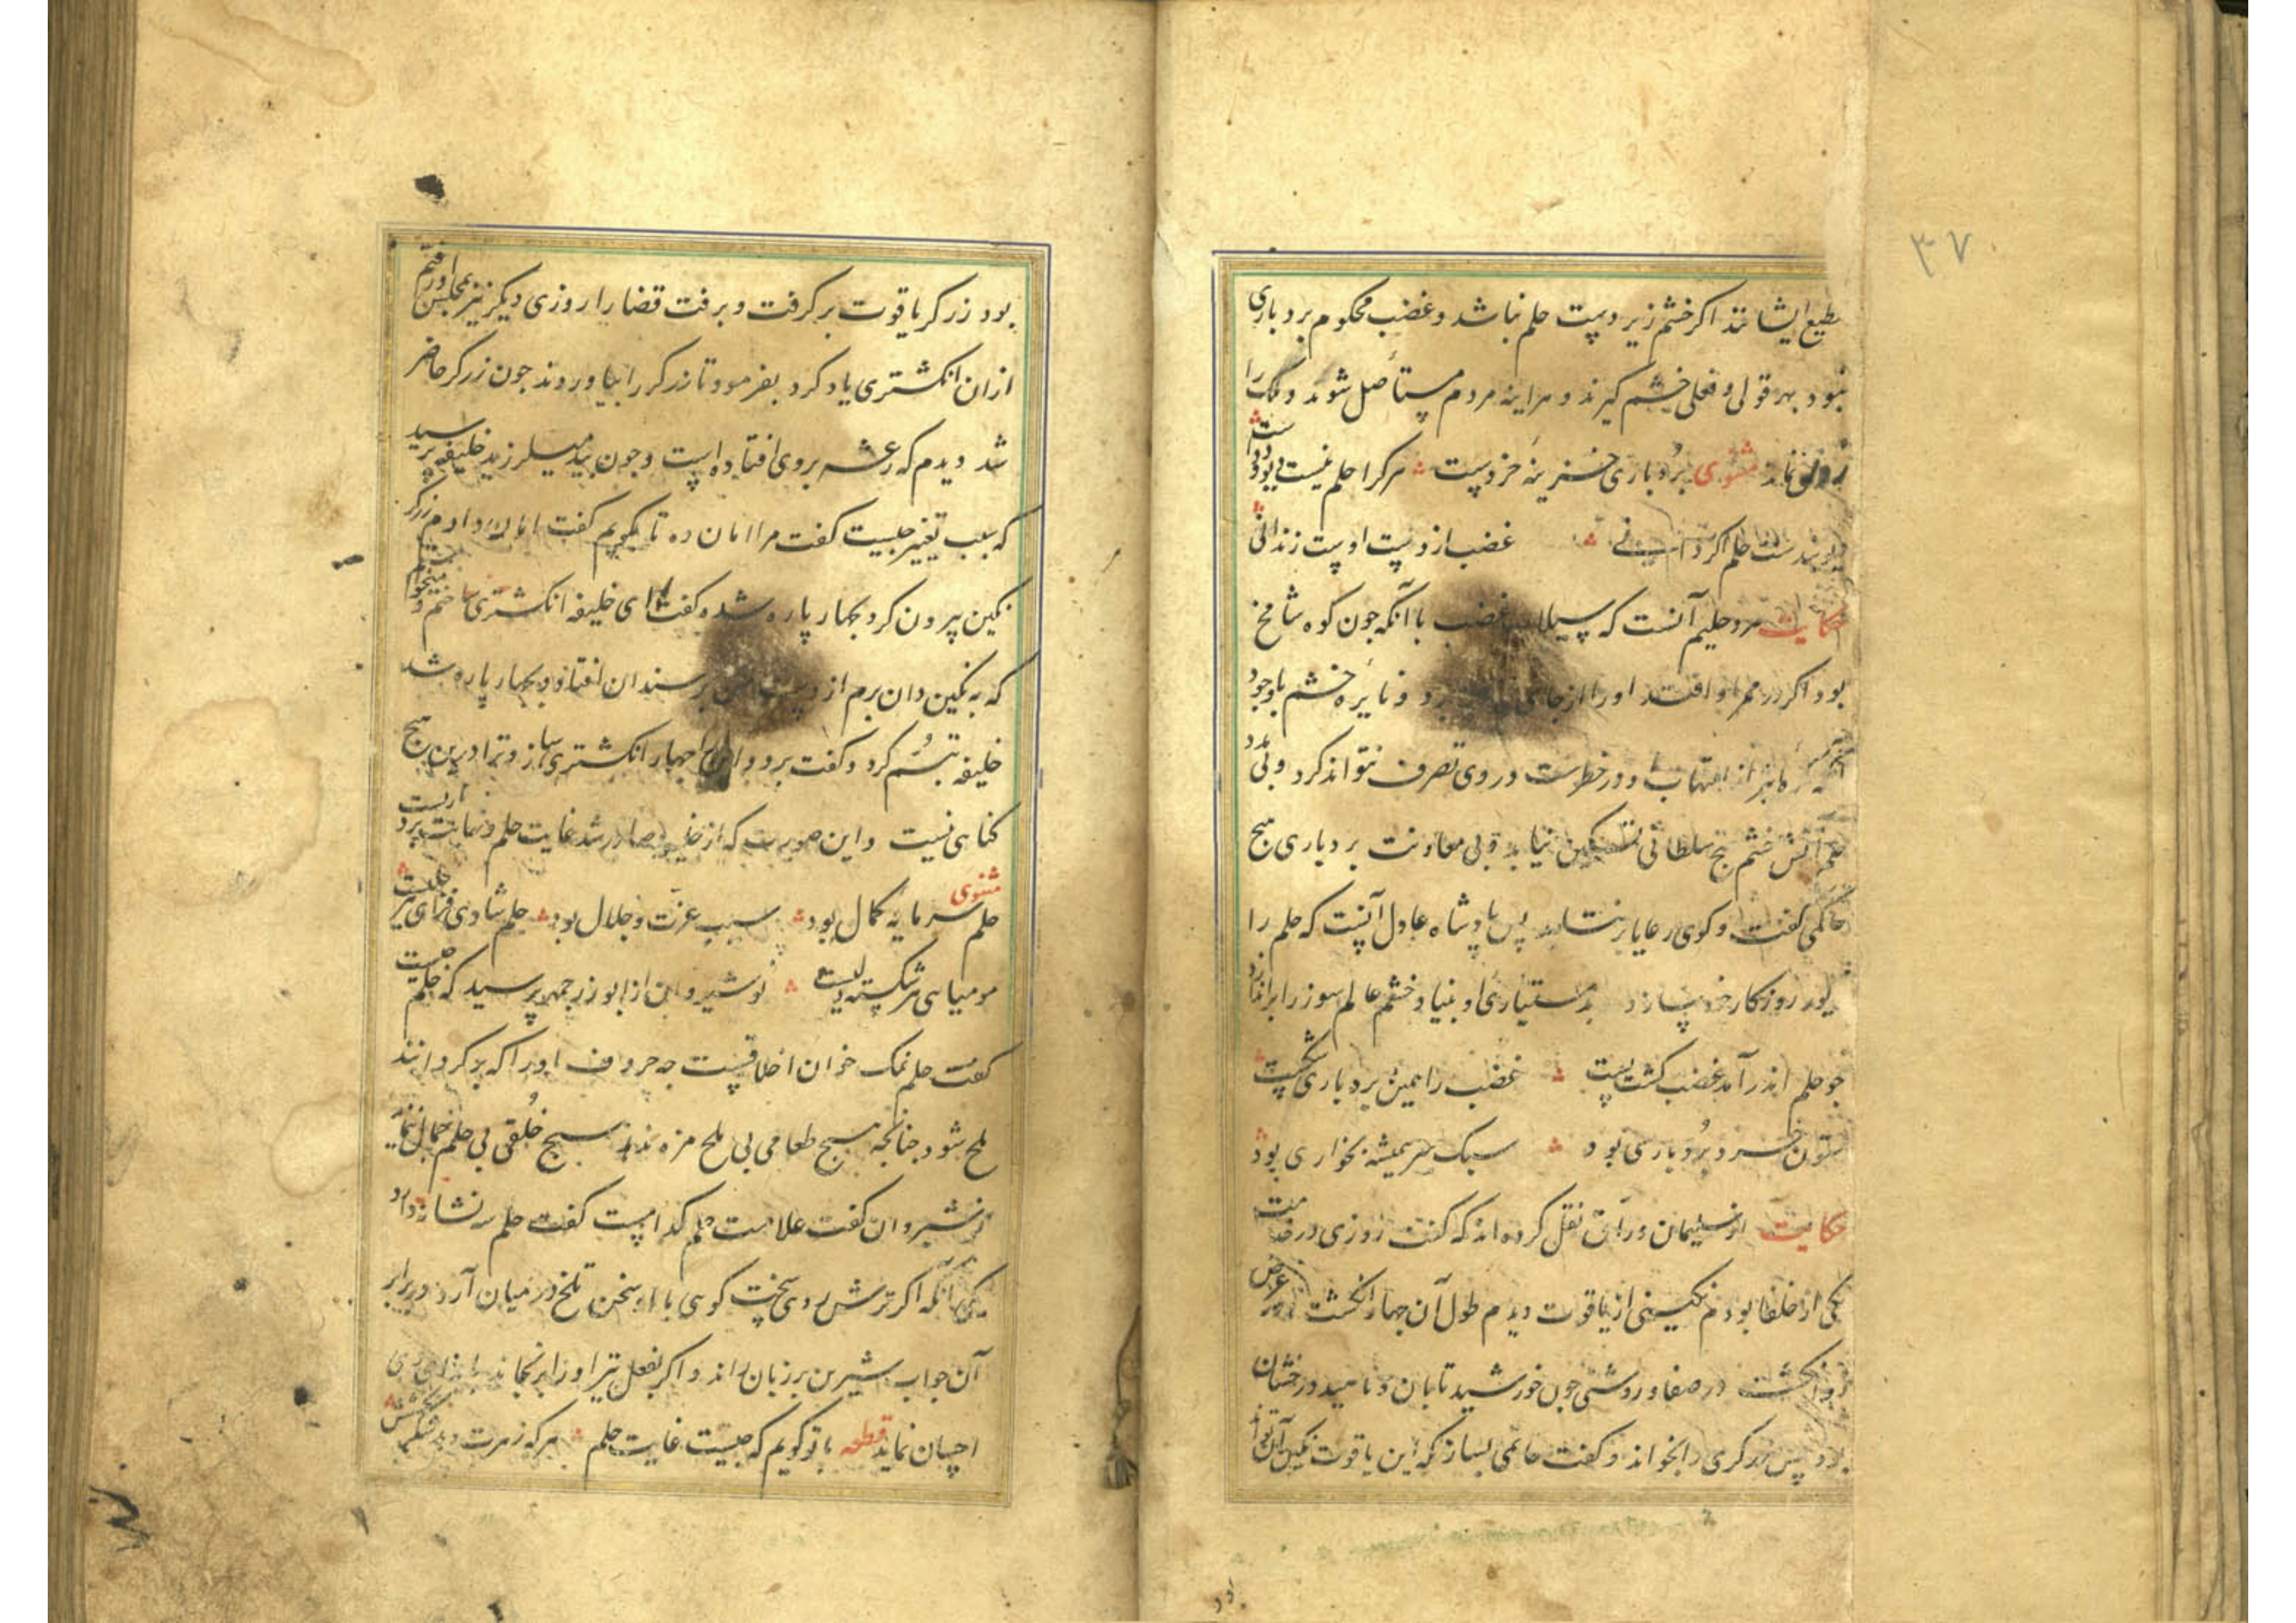 ۳۷
مطیع ایشانند اکر خشم زیر دست حلم نباشد و غضب محکوم بردباری
نبود بهر قولی و فعلی خشم کیرند و هراینه مردم مستأصل شوند و ملک را
رونق نماند مثنوی بردباری خزینه خردست هرکرا حلم نیست دیو و ددست
حلم اکر غضب از دست اوست زندانی
حکایت مرد حلیم آنست که سیلاب غضب با آنکه جون کوه شامخ
بود اکر در ممر او افتد او را از جای برد و نایره خشم باوجود
التهاب در وی تصرف نتواند کرد و بی مدد
حلم آتش خشم هیج سلطانی تسکین نیابد و بی معاونت بردباری هیج
حاکمی کفت و کوی رعایا بر نتابد پس پادشاه عادل آنست که حلم را
روزکار خود سازد بدستیاری او بنیاد خشم عالم سوز را براندازد
جو حلم اندر آمد غضب کشت پست غضب را همین بردباری شکست
ستون خرد بردباری بود سبک سر همیشه بخواری بود
حکایت ابو سلیمان ورآق نقل کرده اند که کفت روزی در خدمت
یکی از خلفا بودم نکینی از یاقوت دیدم طول آن جهار انکشت و در عرض
دو انکشت در صفا و روشنی جون خورشید تابان و ناهید درخشان
بود پس زرکری را بخواند و کفت خاتمی بساز که این یاقوت نکین آن تواند
بود زرکر یاقوت برکرفت و برفت قضا را روزی دیکر نیز بمجلس او رفتم
ازان انکشتری یاد کرد بفرمود تا زرکر را بیاوردند جون زرکر حاضر
شد دیدم که رعشه بر وی افتاده است و جون بید میلرزید خلیفه پرسید
که سبب تغییر جیست کفت مرا امان ده تا بکویم کفت امان دادم زرکر
نکین بیرون کرد بجهار پاره شده و کفت ای خلیفه انکشتری ساختم و میخواستم
که به نکین دان برم از دست من بر سندان افتاد و بجهار پاره شد
خلیفه تبسم کرد و کفت برو و جهار انکشتری ساز و ترا درین هیج
کناهی نیست و این صورت که از خلیفه صادر شد غایت حلم و نهایت بردباریست
مثنوی
حلم سرمایه کمال بود سبب عزت و جلال بود حلم شادی فزای هر
مومیای هر شکسته نوشیروان از ابوزرجمهر پرسید که حلم جیست
کفت حلم نمک خوان اخلاقست جه حروف او را که بر کردانند
ملح شود جنانکجه هیج طعامی بی ملح مزه ندهد هیج خلقی بی حلم جمال ننماید
نوشیروان کفت علامت حلم کدامست کفت حلم سه نشانه دارد
یکی آنکه اکر ترش روی سخت کوی با او سخن تلخ در میان آرد در برابر
آن جواب شیرین بر زبان راند و اکر بفعل نیز او را برنجاند
احسان نماید قطعه با تو کویم که جیست غایت حلم هرکه زهرت دهد شکر بخشش